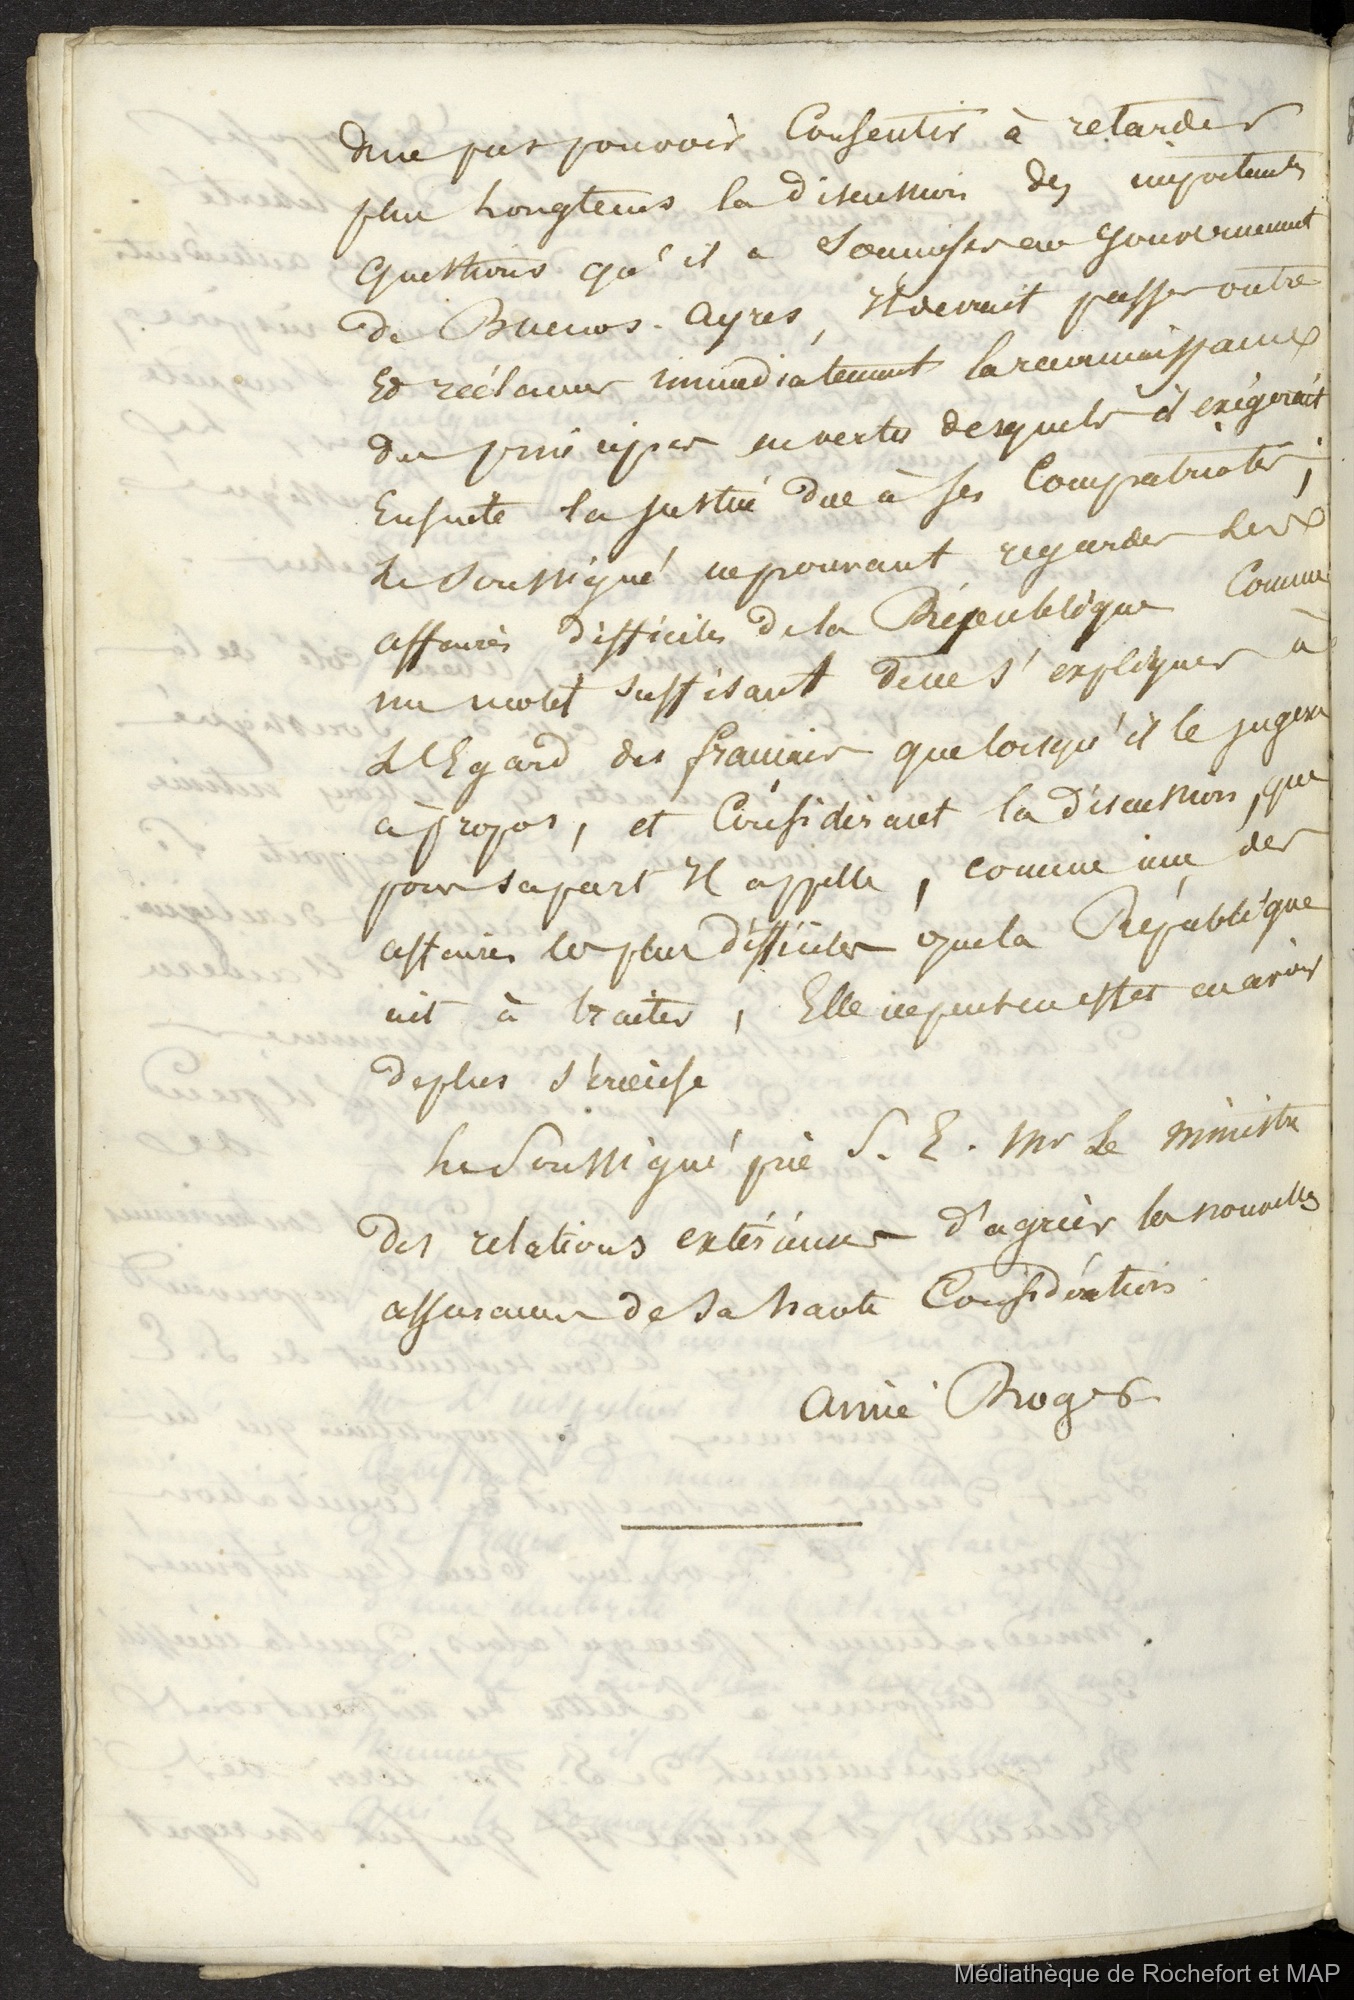 de ne pas pouvoir Consentir à retarder
plus Longtems la discussion des importantes
questions qu'il a soumises au Gouvernement
de Buenos-Ayres, Il devrait passer outre
Et réclamer immédiatement la reconnaissance
des principes en vertu desquels il exigerait
Ensuite la justice due à ses Compatriotes;
Le Soussigné ne pouvant regarder Les
affaires difficiles de la République Comme
un motif suffisant de ne s'expliquer à
L'Egard des français que lorsqu'il le jugera
à propos, et Considérant la discussion, que
pour sa part Il appelle, comme une des
affaires les plus difficiles que la République
ait à traiter, Elle ne peut en effet en avoir
de plus sérieuse
Le Soussigné prie S. E. Mr Le Ministre
des relations extérieures d'agréer les nouvelles
assurances de Sa haute Considération
Aimé Roger
Médiathèque de Rochefort et MAP